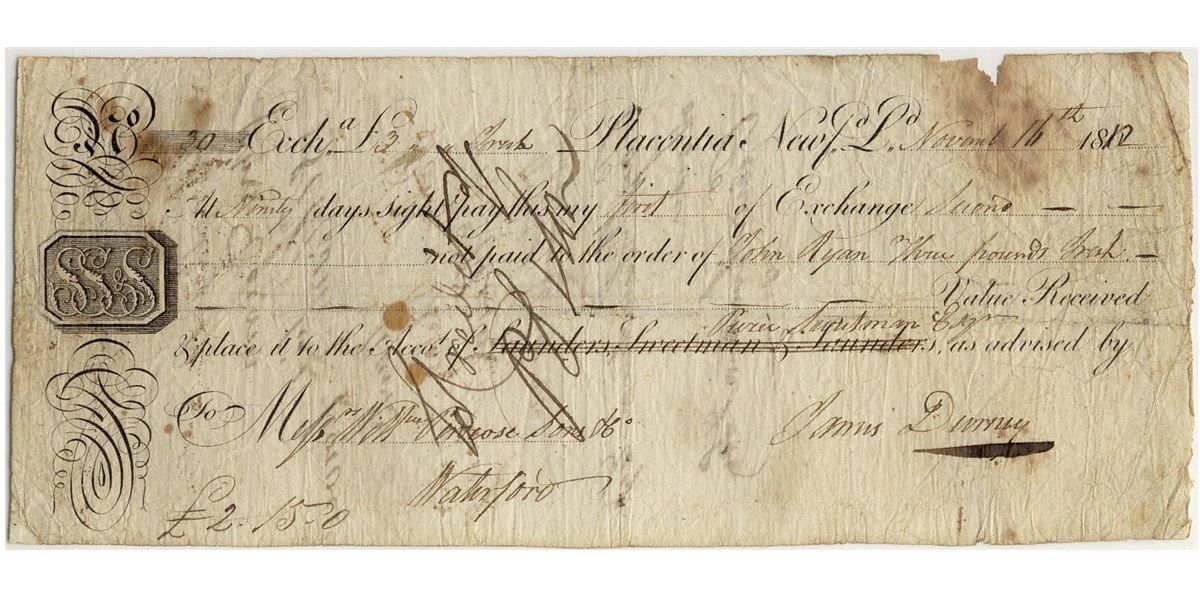 No 30 Exch.a £3 " " Irish Placentia New.f.d L.d Novemb 16th 1812
At Ninety days sight pay this my first of Exchange Second
not paid to the order of John Ryan Three pounds Irish
Value Received
Pierce Sweetman Esqr
& place it to the Acco.t of Saunders, Sweetman & Saunders, as advised by
SS&S
To Messrs Willm Penrose Sons & Co James Downey
Waterford
£2-15-0